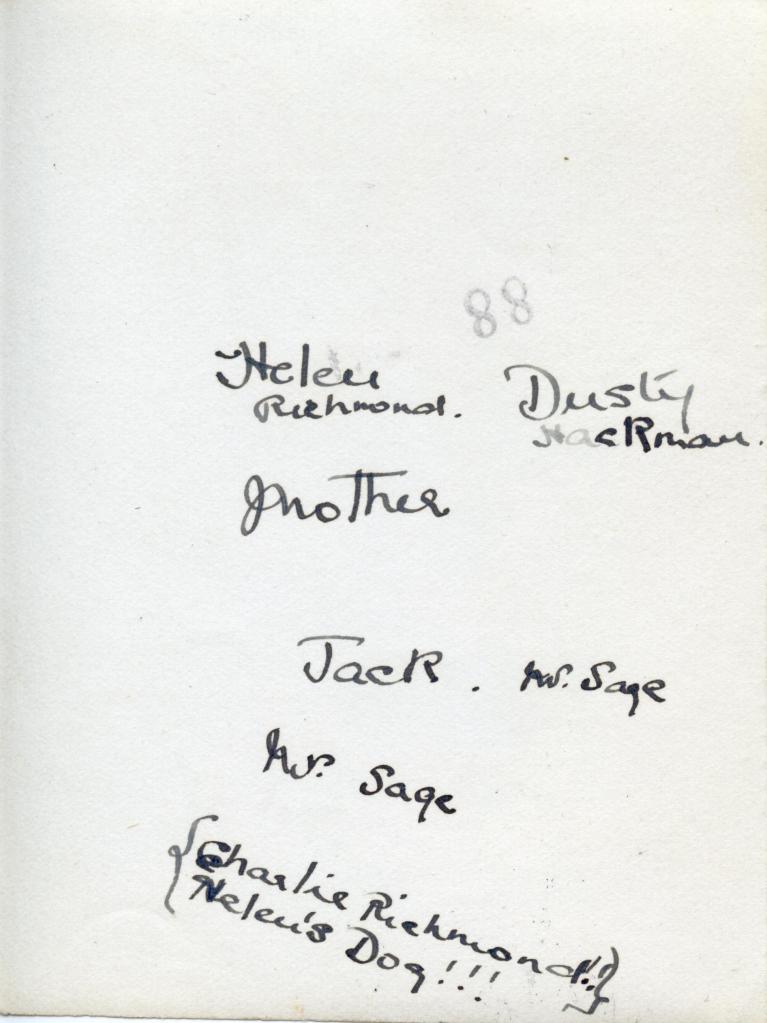 88
Helen
Richmond.
Dusty
Hackman.
Mother
Jack. Mr. Sage
Mr. Sage
{Charlie Richmond!!
Helen's Dog!!!}